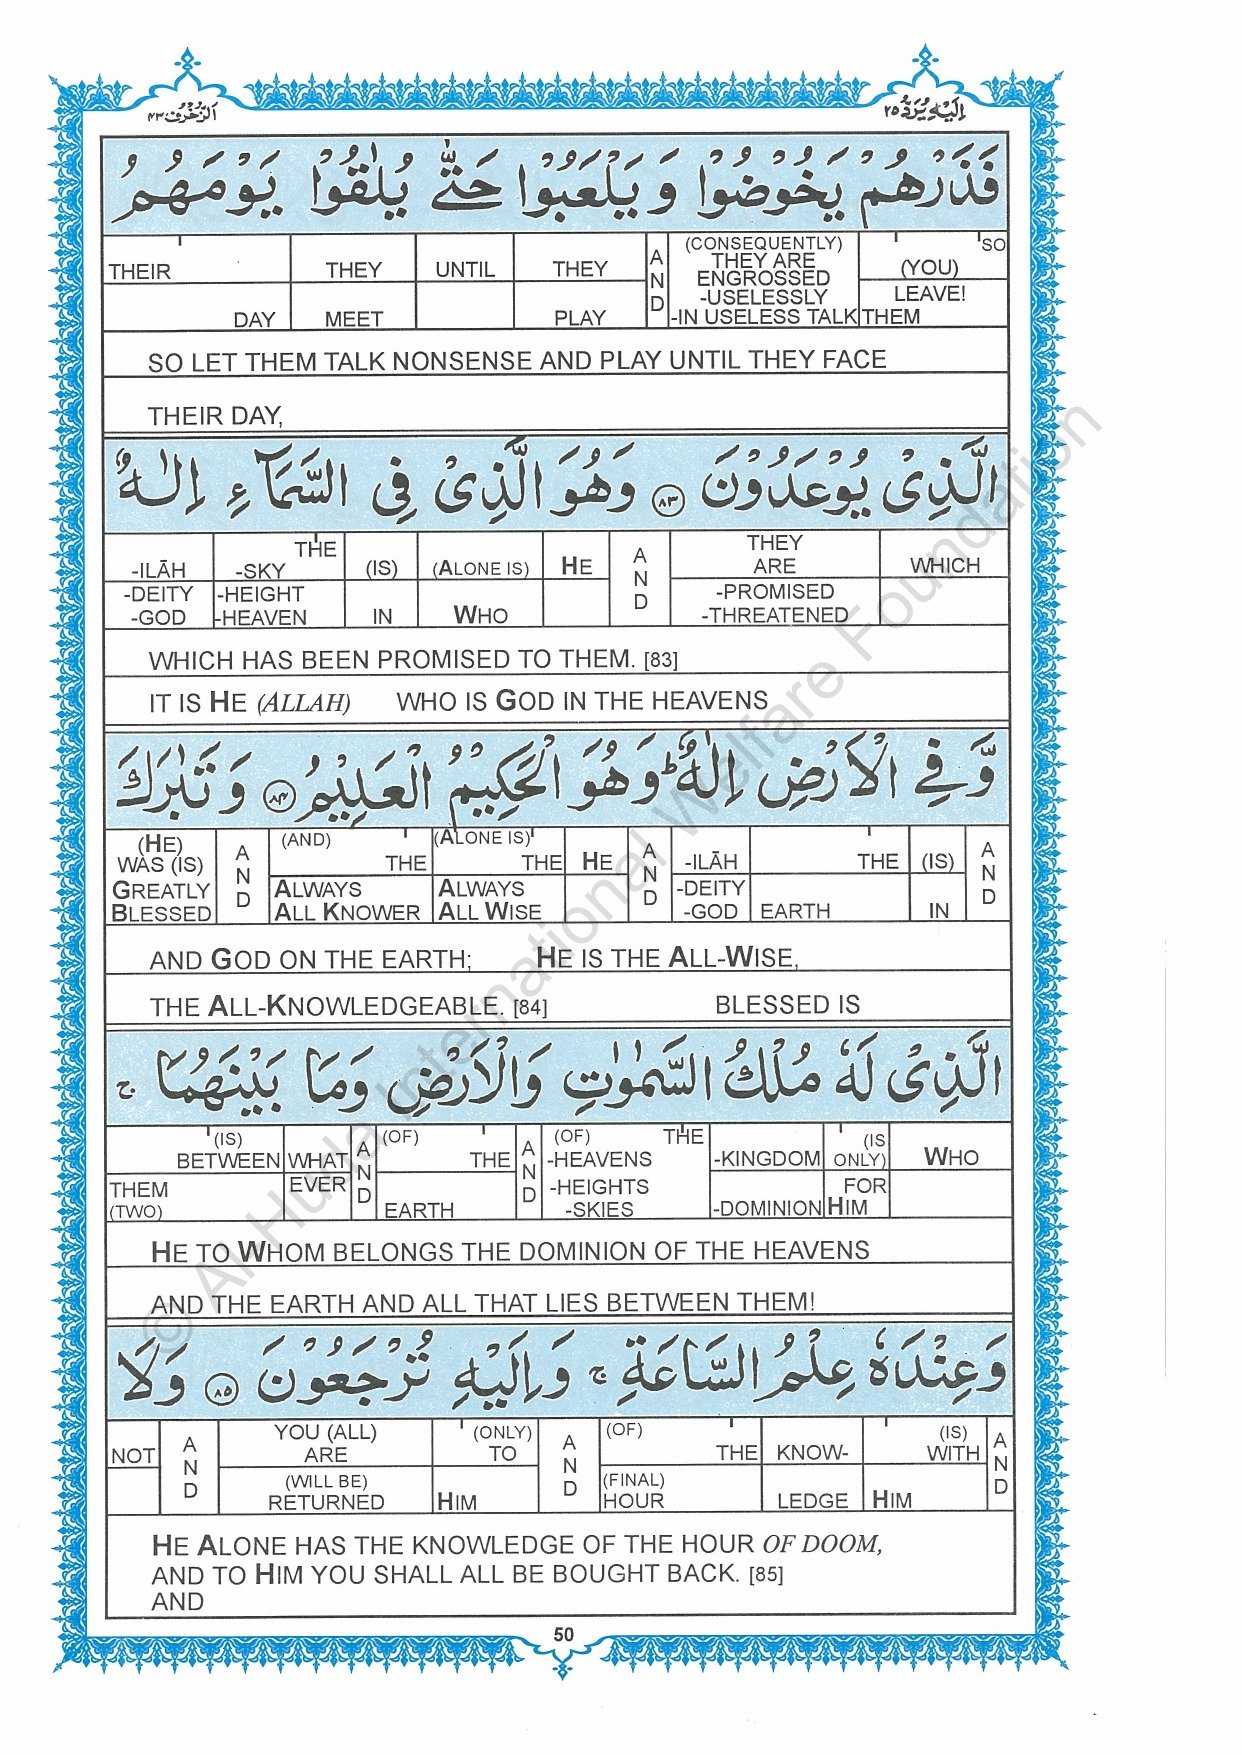 الزخرف ٤٣
اليه يرد ٢٥
فَذَرْهُمْ يَخُوْضُوْا وَ يَلْعَبُوْا حَتّٰى يُلٰقُوْا يَوْمَهُمُ
SO (YOU) LEAVE! THEM
(CONSEQUENTLY) THEY ARE ENGROSSED -USELESSLY -IN USELESS TALK
AND
THEY PLAY
UNTIL
THEY MEET
THEIR DAY
SO LET THEM TALK NONSENSE AND PLAY UNTIL THEY FACE
THEIR DAY,
الَّذِىْ يُوْعَدُوْنَ ﴿٨٣﴾ وَهُوَ الَّذِىْ فِى السَّمَآءِ اِلٰهٌ
WHICH
THEY ARE -PROMISED -THREATENED
AND
HE
(ALONE IS) WHO
(IS) IN
THE -SKY -HEIGHT -HEAVEN
-ILĀH -DEITY -GOD
WHICH HAS BEEN PROMISED TO THEM. [83]
IT IS HE (ALLAH) WHO IS GOD IN THE HEAVENS
وَّ فِى الْاَرْضِ اِلٰهٌ ؕ وَهُوَ الْحَكِيْمُ الْعَلِيْمُ ﴿٨٤﴾ وَ تَبٰرَكَ
AND
(IS) IN
THE EARTH
-ILĀH -DEITY -GOD
AND
HE
(ALONE IS) THE ALWAYS ALL WISE
(AND) THE ALWAYS ALL KNOWER
AND
(HE) WAS (IS) GREATLY BLESSED
AND GOD ON THE EARTH; HE IS THE ALL-WISE,
THE ALL-KNOWLEDGEABLE. [84] BLESSED IS
الَّذِىْ لَهٗ مُلْكُ السَّمٰوٰتِ وَالْاَرْضِ وَمَا بَيْنَهُمَا ۚ
WHO
(IS ONLY) FOR HIM
-KINGDOM -DOMINION
(OF) THE -HEAVENS -HEIGHTS -SKIES
AND
(OF) THE EARTH
AND
WHAT EVER
(IS) BETWEEN THEM (TWO)
HE TO WHOM BELONGS THE DOMINION OF THE HEAVENS
AND THE EARTH AND ALL THAT LIES BETWEEN THEM!
وَعِنْدَهٗ عِلْمُ السَّاعَةِ ۚ وَاِلَيْهِ تُرْجَعُوْنَ ﴿٨٥﴾ وَلَا
AND
(IS) WITH HIM
KNOW-LEDGE
(OF) THE (FINAL) HOUR
AND
(ONLY) TO HIM
YOU (ALL) ARE (WILL BE) RETURNED
AND
NOT
HE ALONE HAS THE KNOWLEDGE OF THE HOUR OF DOOM,
AND TO HIM YOU SHALL ALL BE BOUGHT BACK. [85]
AND
50
© Al Huda International Welfare Foundation